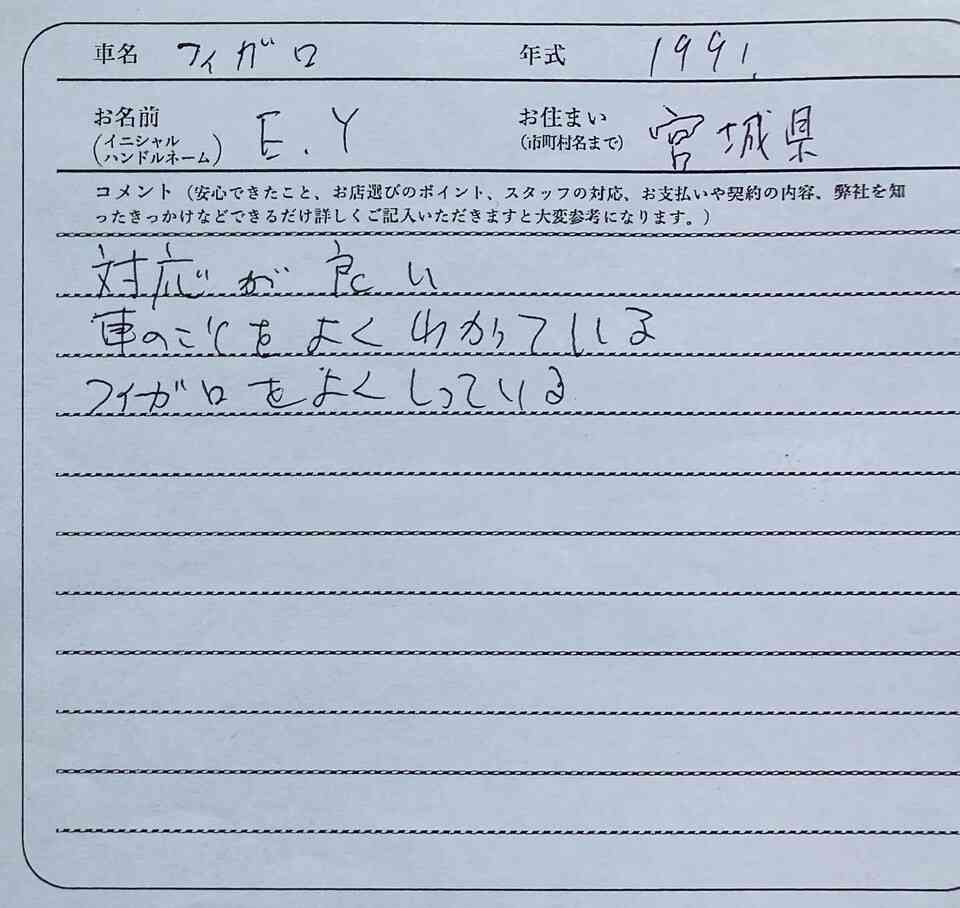 車名 フィガロ 年式 1991.
お名前 (イニシャル ハンドルネーム) E.Y お住まい (市町村名まで) 宮城県
コメント（安心できたこと、お店選びのポイント、スタッフの対応、お支払いや契約の内容、弊社を知
ったきっかけなどできるだけ詳しくご記入いただきますと大変参考になります。）
対応が良い
車のことをよくわかっている
フィガロをよくしっている